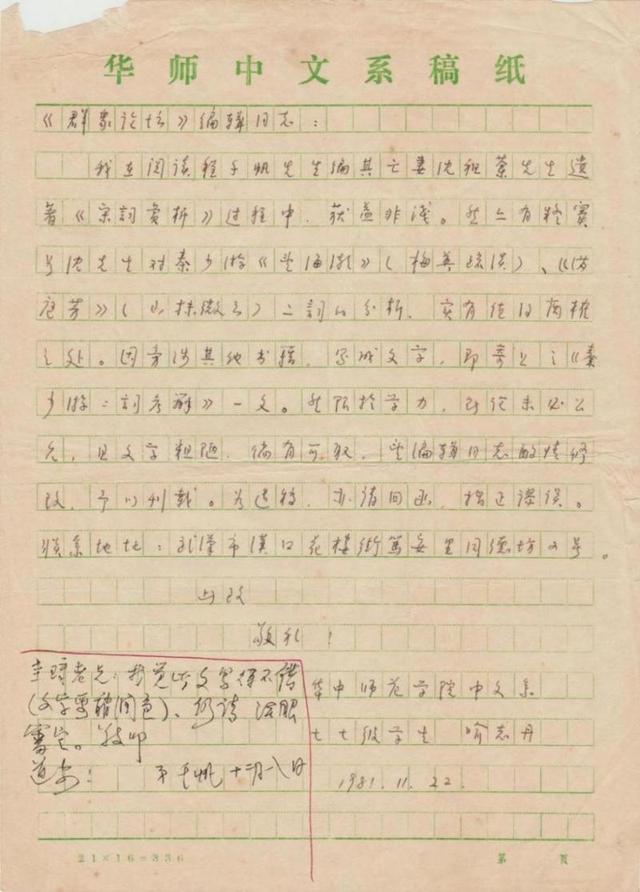 华师中文系稿纸
《群众论坛》编辑同志：
我在阅读程千帆先生编其亡妻沈祖棻先生遗
著《宋词赏析》过程中，获益非浅。然亦有
沈先生对秦少游《望海潮》（梅英疏淡）、《满
庭芳》（山抹微云）二词的分析，实有值得商榷
之处。因旁涉其他书籍，写成文字，即寄上之《秦
少游二词考辨》一文。然限于学力，所论未必公
允，且文字粗陋，倘有可取，望编辑同志酌情修
改，予以刊载。若退稿，亦请回函，指正谬误。
联系地址：武汉市漢口花楼街笃安里同德坊　号。
此致
敬礼！
华中师范学院中文系
七七级学生　喻志丹
1981.11.22.
老兄：我觉此文写得不错
（文字要稍润色），仍请法眼
审定。敬叩
道安！　弟千帆　十二月八日
21×16=336　第　页